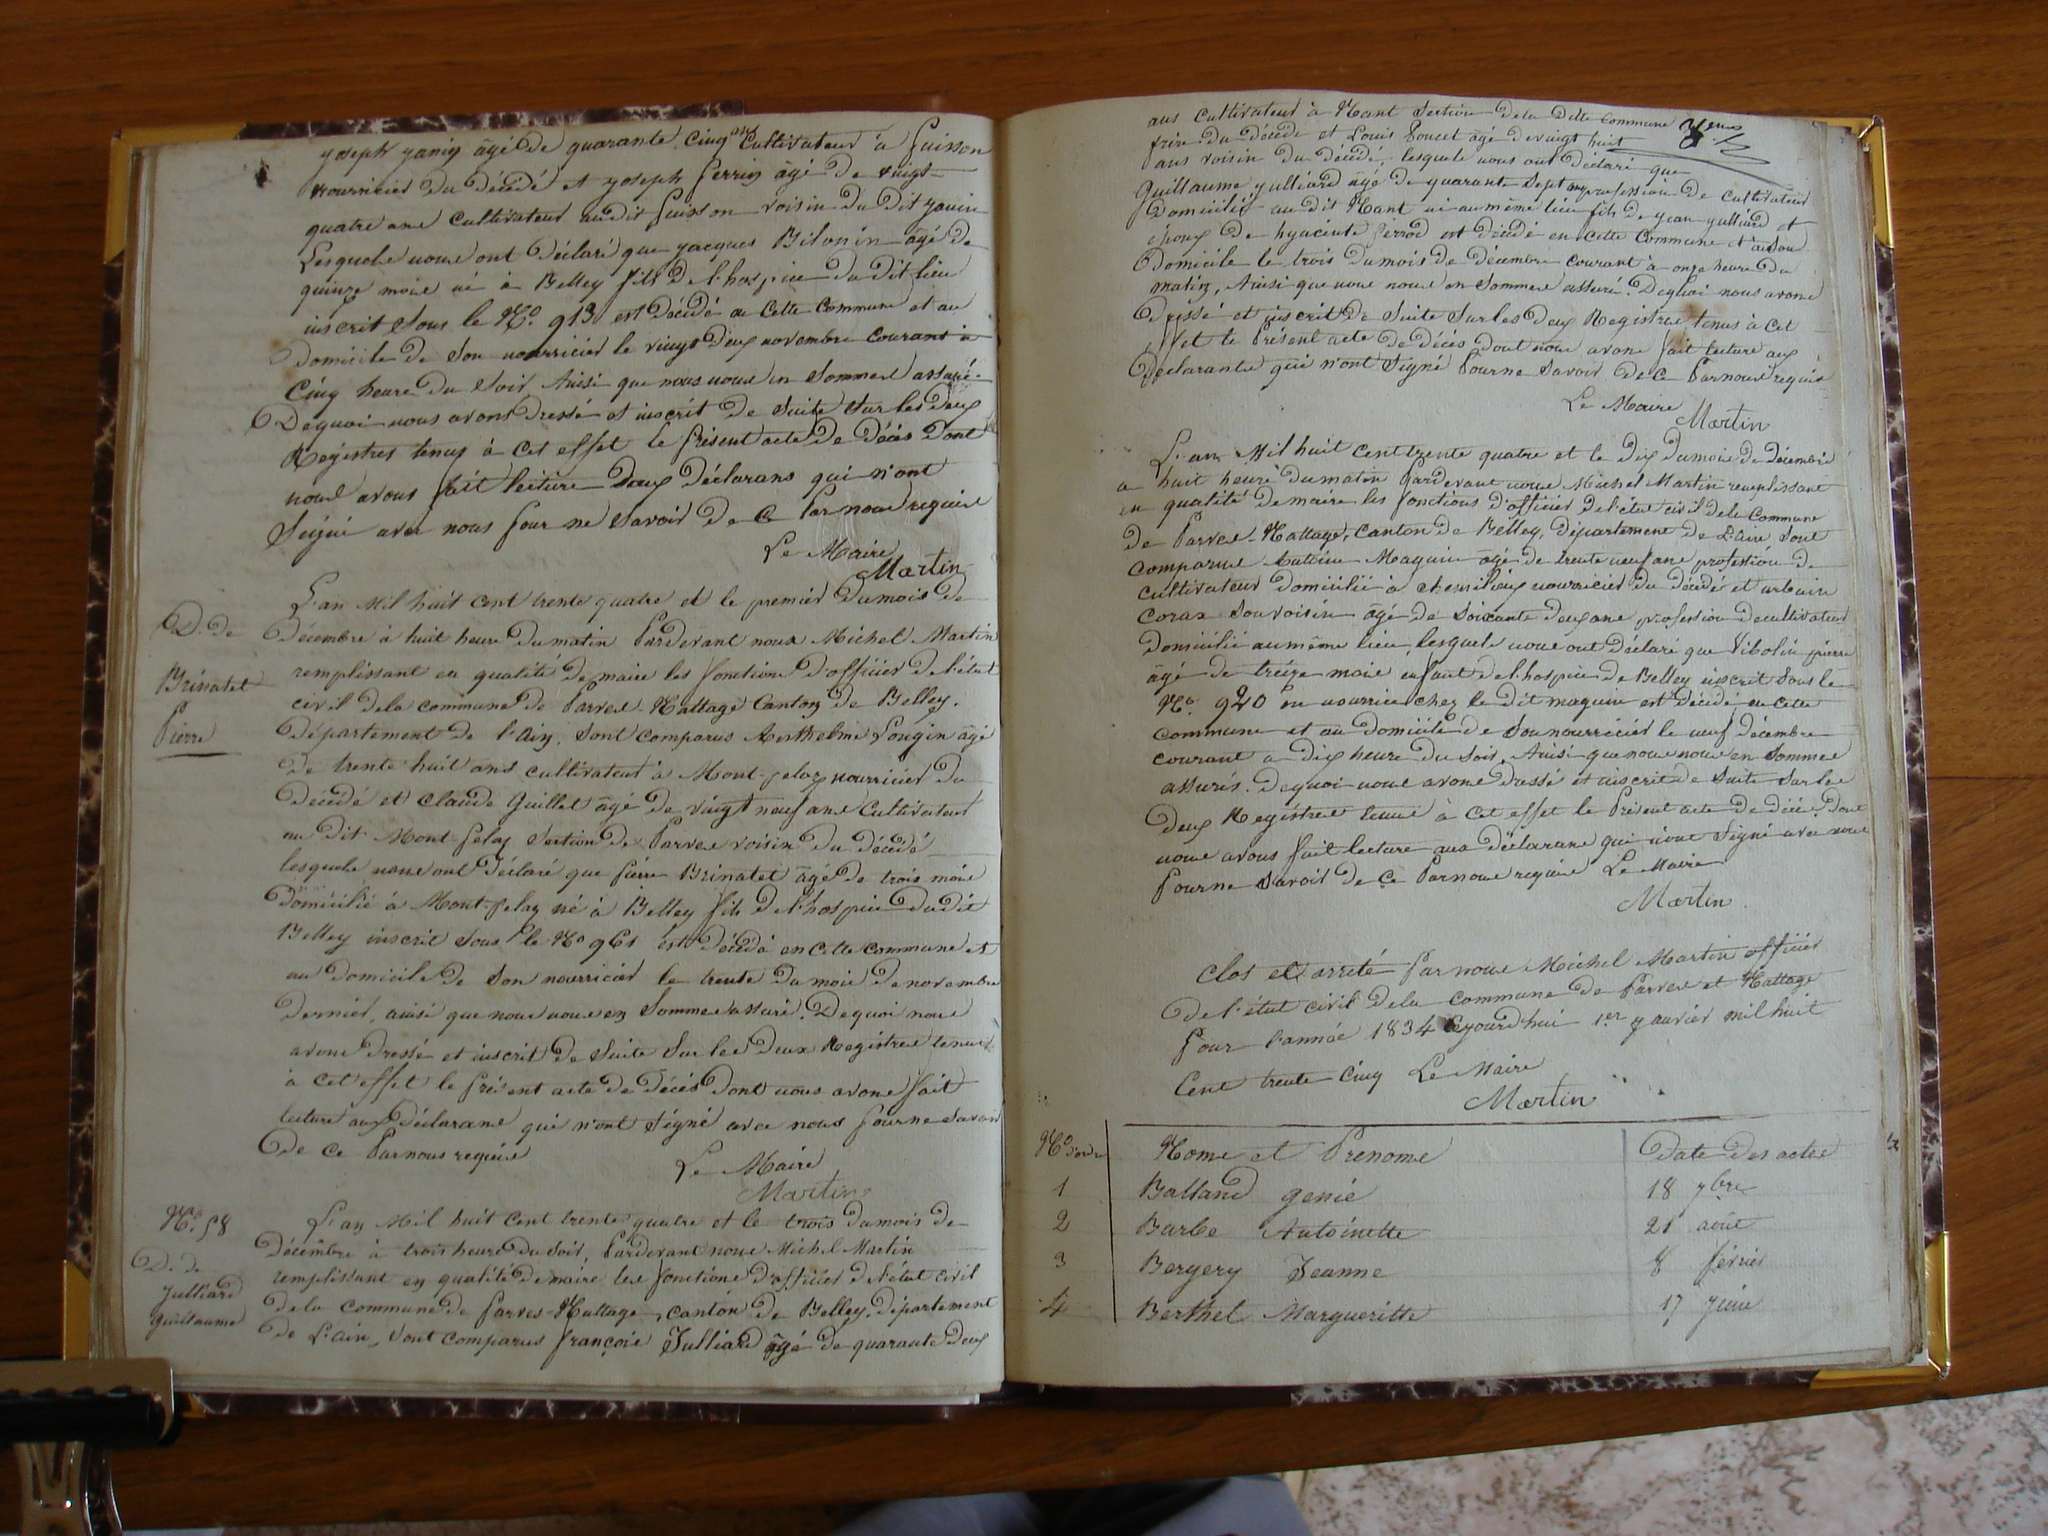 yoseph yanin âgé de quarante cinq ans Cultivateur à Puisson
nourricier du décédé et yoseph Perrin âgé de vingt
quatre ans cultivateur au dit Puisson voisin du dit yanin
Lesquels nous ont déclaré que yacques Bilonin âgé de
quinze mois né à Belley fils de l'hospice du dit lieu
inscrit sous le No. 913 est décédé en cette commune et au
domicile de son nourricier le vingt deux novembre courant à
cinq heure du soir Ainsi que nous nous en sommes assuré.
Dequoi nous avons dressé et inscrit de suite sur les deux
Registres tenus à cet effet le présent acte de décés dont
nous avons fait lecture aux déclarans qui n'ont
Signé avec nous pour ne savoir de ce par nous requis
Le Maire
Martin
L'an Mil huit cent trente quatre et le premier du mois de
D. de
décembre à huit heure du matin Pardevant nous Michel Martin
Brinatet
remplissant en qualité de maire les fonctions d'officier de l'état
civil dela commune de Parves-Nattage Canton de Belley.
Pierre
département de l'ain. Sont comparus Anthelme Lougin âgé
de trente huit ans cultivateur à Mont-pelaz nourricier du
décédé et Claude Guillet âgé de vingt neuf ans Cultivateur
au dit Mont-pelaz Section de Parves voisin du décédé
lesquels nous ont déclaré que pierre Brinatet âgé de trois mois
domicilié à Mont-pelaz né à Belley fils de l'hospice du dit
Belley inscrit sous le No 961 est décédé en cette commune et
au domicile de son nourricier le trente du mois de novembre
dernier, ainsi que nous nous en sommes assuré. Dequoi nous
avons dressé et inscrit de suite sur les deux Registres tenus
à cet effet le présent acte de décés dont nous avons fait
lecture aux déclarans qui n'ont signé avec nous pour ne savoir
de ce par nous requis
Le Maire
Martin
No. 58
L'an Mil huit cent trente quatre et le trois du mois de
D. de
décembre à trois heure du soir, Pardevant nous Michel Martin
Julliard
remplissant en qualité de maire les fonctions d'officier de l'état civil
guillaume
dela commune de Parves-Nattage, canton de Belley, département
de L'ain, Sont comparus françois Julliard âgé de quarante deux
ans cultivateur à Nant Section dela dite commune
frère du décédé et Louis Poncet âgé de vingt huit
ans voisin du décédé, lesquels nous ont déclaré que
Guillaume yulliard âgé de quarante sept ans profession de cultivateur
domicilié au dit Nant né au même lieu fils de yean yulliard et
époux de hyacinte Perrod est décédé en cette commune et à son
domicile le trois du mois de décembre courant à onze heure du
matin, Ainsi que nous nous en sommes assuré. Dequoi nous avons
dressé et inscrit de suite sur les deux Registres tenus à cet
effet le Présent acte de décés dont nous avons fait lecture aux
déclarants qui n'ont signé pour ne savoir de ce par nous requis
Le Maire
Martin
L'an Mil huit cent trente quatre et le dix du mois de décembre
à huit heure du matin Pardevant nous Michel Martin remplissant
en qualité de maire les fonctions d'officier de l'état civil dela commune
de Parves-Nattage, canton de Belley, département de L'ain sont
comparus Antoine Maguin âgé de trente neuf ans profession de
cultivateur domicilié à chemilieu nourricier du décédé et urbain
Coraz son voisin âgé de soixante deux ans profession de cultivateur
domicilié au même lieu, lesquels nous ont déclaré que Vibolin pierre
âgé de treize mois enfant de l'hospice de Belley inscrit sous le
No. 920 en nourrice chez le dit maguin est décédé en cette
commune et au domicile de son nourricier le neuf décembre
courant a dix heure du soir. Ainsi que nous nous en sommes
assurés. Dequoi nous avons dressé et inscrit de suite sur les
deux Registres tenus à cet effet le Présent acte de décés dont
nous avons fait lecture aux déclarans qui n'ont signé avec nous
pour ne savoir de ce Par nous requis Le Maire
Martin
Clos et arreté Par nous Michel Martin officier
de l'état civil dela commune de Parves et Nattage
Pour l'année 1834 Ejourdhui 1er yanvier mil huit
Cent trente cinq Le Maire
Martin
No d'ordre Noms et Prenoms Date des actes
1 Balland genie 18 7bre
2 Barbe Antoinette 21 août
3 Bergery Jeanne 8 février
4 Berthet Margueritte 17 juin